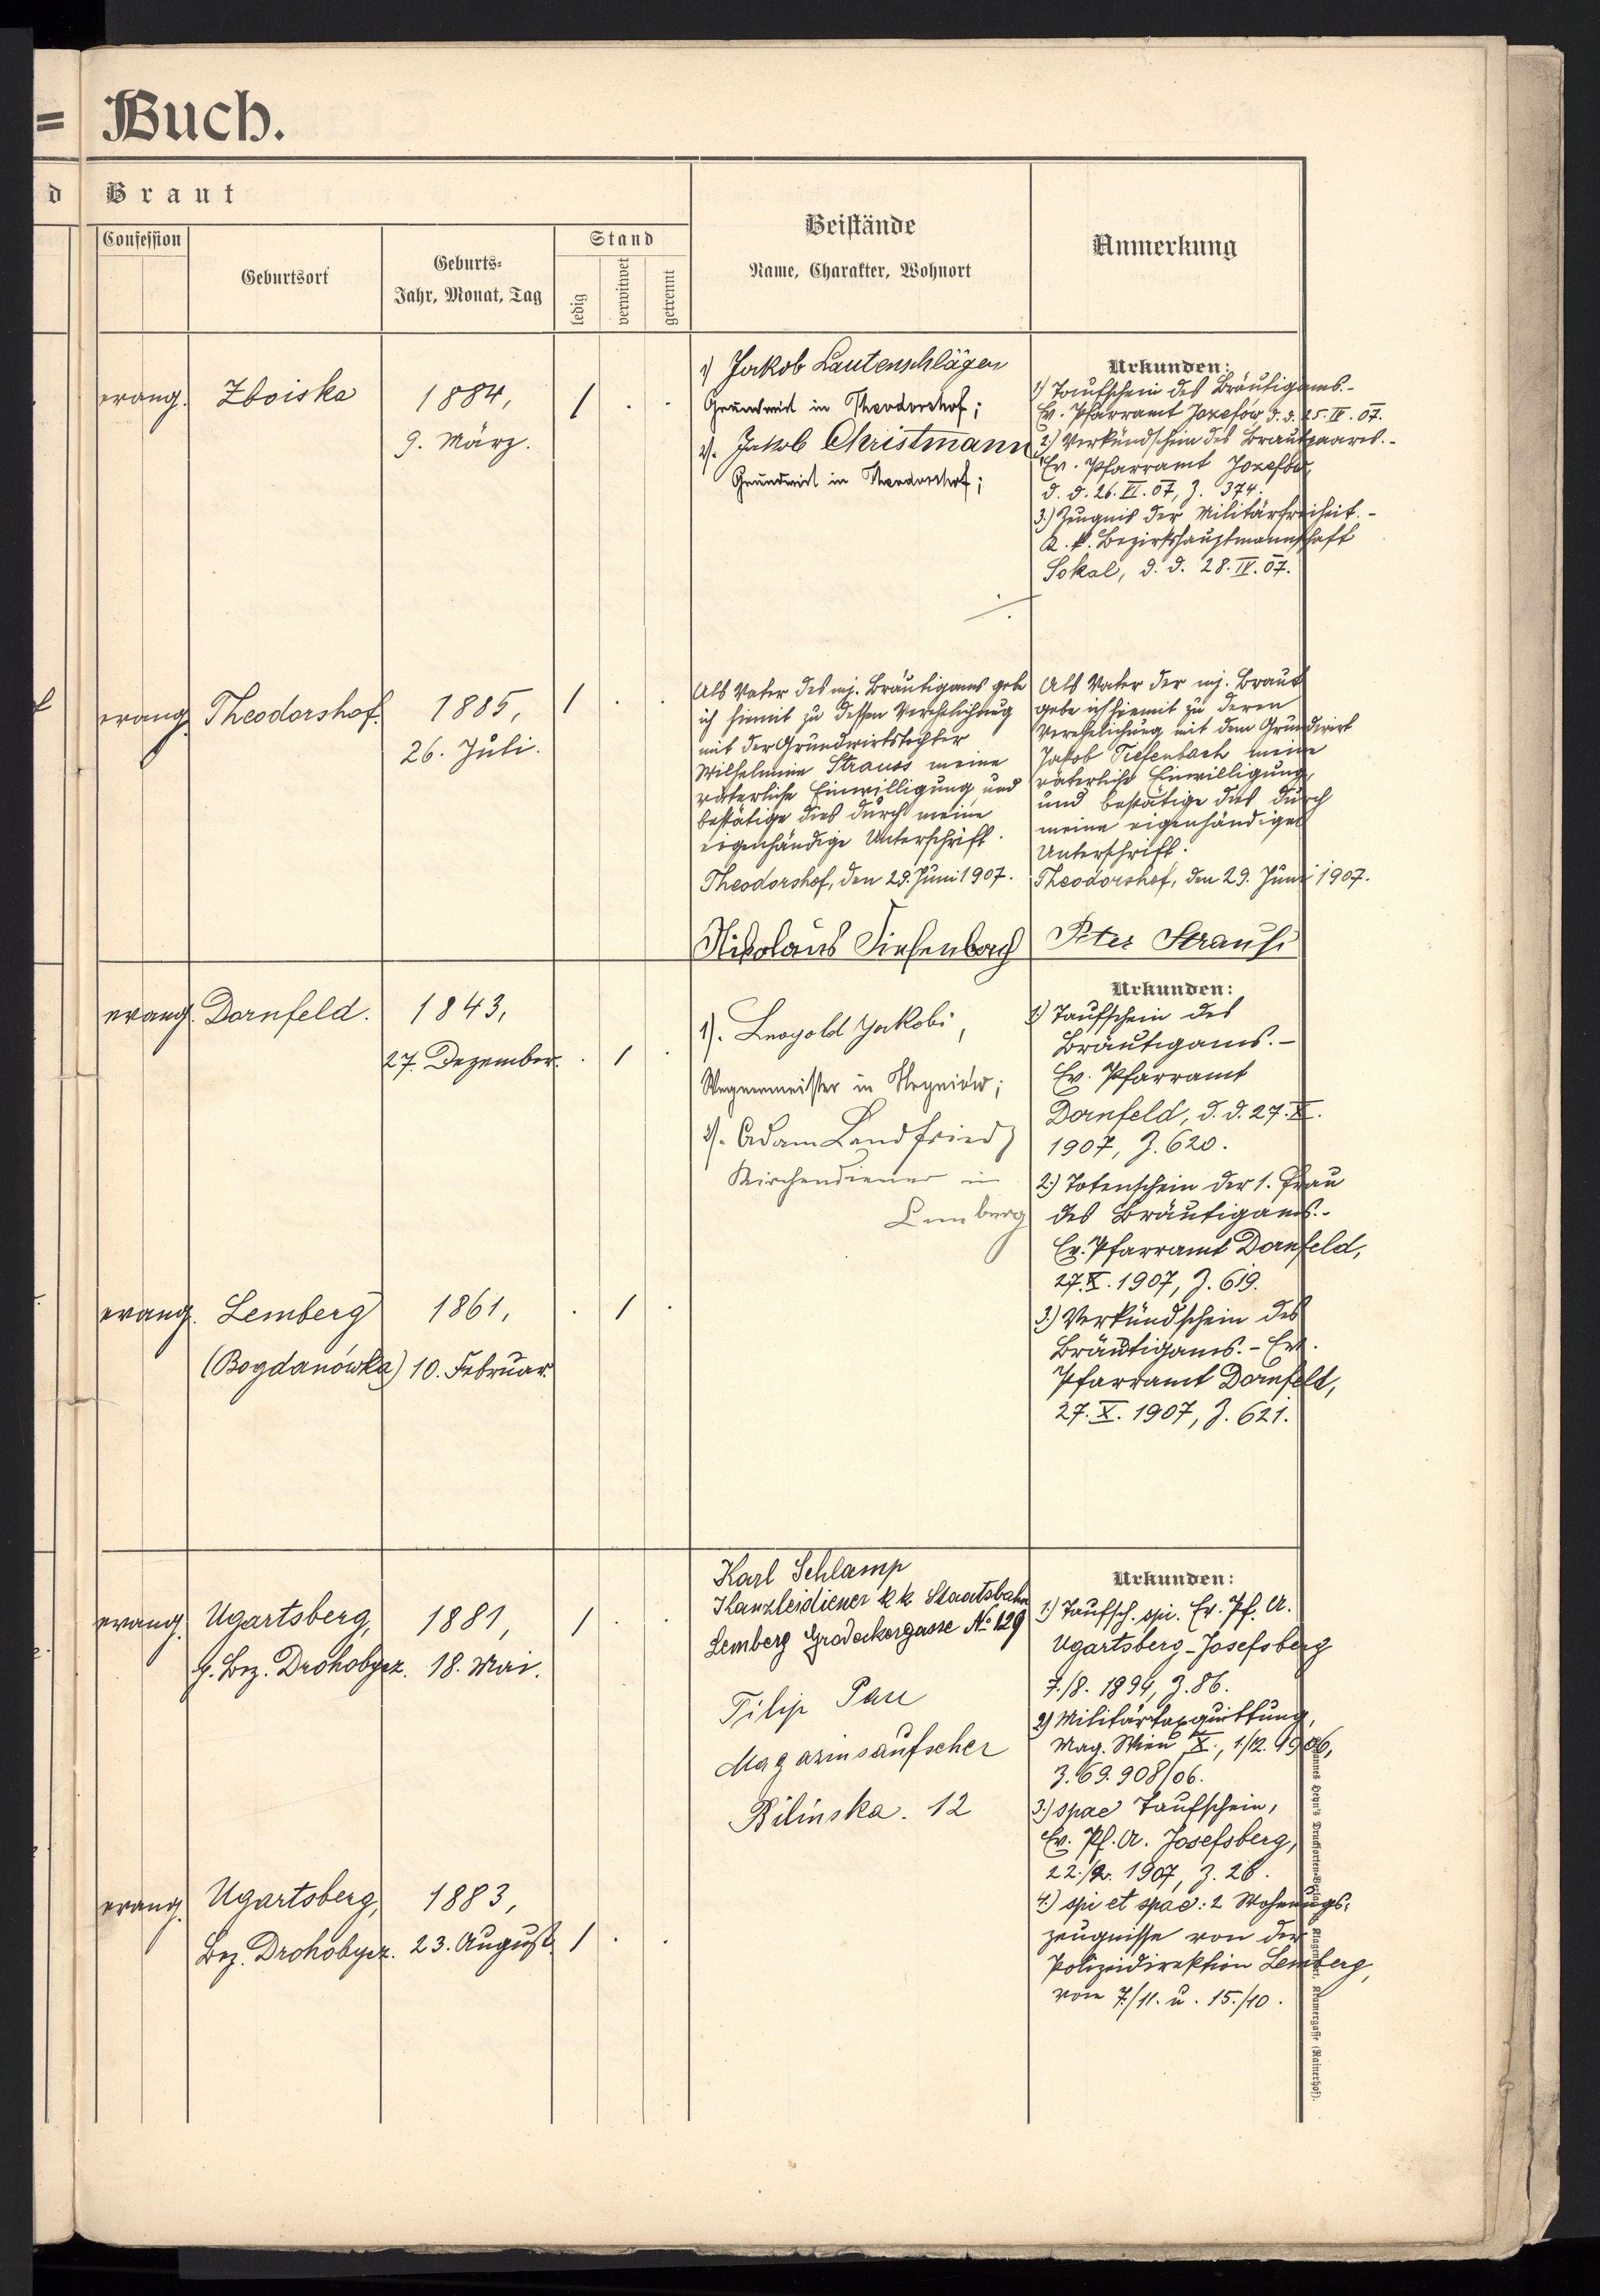 = Buch.
d Braut
Confession
Geburtsort
Geburts-
Jahr, Monat, Tag
Stand
ledig
verwitwet
getrennt
Beistände
Name, Charakter, Wohnort
Anmerkung
evang. Zboiska 1884, 1 . .
9. März.
1) Jakob Lautenschläger
Grundwirt in Theodorshof;
2). Jakob Christmann
Grundwirt in Theodorshof;
Urkunden:
1) Taufschein des Bräutigams.-
Ev. Pfarramt Jozefów d. d. 25. IV. 07.
2.) Verkündschein des Brautpaares.-
Ev. Pfarramt Jozefów,
d. d. 26. VI. 07, Z. 374.
3.) Zeugnis der Militärfreiheit.-
K. k. Bezirkshauptmannschaft
Sokal, d. d. 28. IV. 07.
evang. Theodorshof. 1885, 1 . .
26. Juli.
Als Vater des mj. Bräutigams gebe
ich hiemit zu dessen Verehelichung
mit der Grundwirtstochter
Wilhelmine Strauss meine
väterliche Einwilligung und
bestätige dies durch meine
eigenhändige Unterschrift.
Theodorshof, den 29. Juni 1907.
Nikolaus Tiefenbach
Als Vater der mj. Braut
gebe ich hiemit zu deren
Verehelichung mit dem Grundwirt
Jakob Tiefenbach meine
väterliche Einwilligung,
und bestätige dies durch
meine eigenhändige
Unterschrift.
Theodorshof, den 29. Juni 1907.
Peter Strauß
evang. Dornfeld. 1843,
27. Dezember. . 1 .
1). Leopold Jakobi,
Wagenmeister in
2). Adam Landfried
Kirchendiener in
Lemberg
Urkunden:
1) Taufschein des
Bräutigams.-
Ev. Pfarramt
Dornfeld, d. d. 27. X.
1907, Z. 620.
2.) Totenschein der 1. Frau
des Bräutigams.-
Ev. Pfarramt Dornfeld,
27. X. 1907, Z. 619.
3.) Verkündschein des
Bräutigams.- Ev.
Pfarramt Dornfeld,
27. X. 1907, Z. 621.
evang. Lemberg 1861, . 1 .
(Bogdanówka) 10. Februar.
evang. Ugartsberg, 1881, 1 . .
Bez. Drohobycz. 18. Mai.
Karl Schlamp
Kanzleidiener k k Staatsbahn
Lemberg Grodeckergasse No 129
Filip Pau
Magazinsaufseher
Bilinska. 12
Urkunden:
1.) Taufsch. spi. Ev. Pf. A.
Ugartsberg-Josefsberg
7./8. 1894, Z. 86.
2) Militärtaxquittung,
Mag. Wien X., 1/12. 1906,
Z. 69.908/06.
3.) spae Taufschein,
Ev. Pf. A. Josefsberg,
22./2. 1907, Z. 26.
4.) spi et spae: 2 Wohnungs-
zeugnisse von der
Polizeidirektion Lemberg,
vom 7./11. u. 15./10.
evang. Ugartsberg, 1883,
Bez. Drohobycz. 23. August. 1 . .